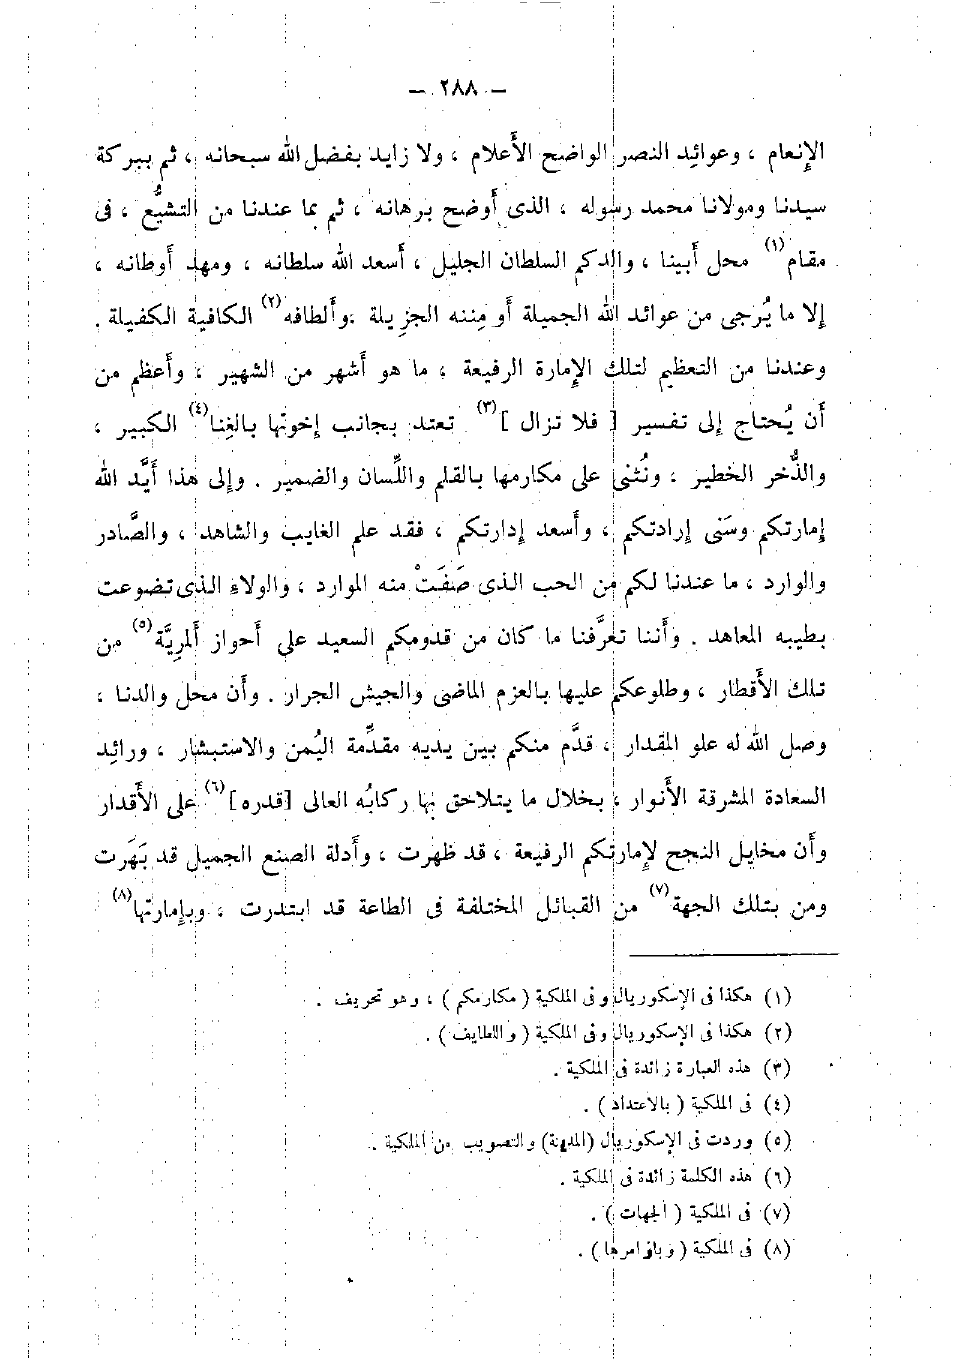 — ٢٨٨ —
الإنعام ، وعوائد النصر الواضح الأعلام ، ولا زايد بفضل الله سبحانه ، ثم ببركة
سيدنا ومولانا محمد رسوله ، الذى أوضح برهانه ، ثم بما عندنا من التشيُّع ، فى
مقام(١) محل أبينا ، والدكم السلطان الجليل ، أسعد الله سلطانه ، ومهد أوطانه ،
إلا ما يُرجى من عوائد الله الجميلة أو مِننه الجزيلة ،وألطافه(٢) الكافية الكفيلة .
وعندنا من التعظيم لتلك الإمارة الرفيعة ، ما هو أشهر من الشهير ، وأعظم من
أن يُحتاج إلى تفسير [ فلا تزال ](٣) تعتد بجانب إخوتها بالغِنا(٤) الكبير ،
والذُّخر الخطير ، ونُثنى على مكارمها بالقلم واللِّسان والضمير . وإلى هذا أيَّد الله
إمارتكم وسَنى إرادتكم ، وأسعد إدارتكم ، فقد علم الغايب والشاهد ، والصَّادر
والوارد ، ما عندنا لكم من الحب الذى صَفَتْ منه الموارد ، والولاء الذى تضوعت
بطيبه المعاهد . وأننا تعَرَّفنا ما كان من قدومكم السعيد على أحواز ألمرِيَّة(٥) من
تلك الأقطار ، وطلوعكم عليها بالعزم الماضى والجيش الجرار . وأن محل والدنا ،
وصل الله له علو المقدار ، قدَّم منكم بين يديه مقدِّمة اليُمن والاستبشار ، ورائد
السعادة المشرقة الأنوار ، بخلال ما يتلاحق بها ركابُه العالى [قدره](٦) على الأقدار
وأن مخايل النجح لإمارتكم الرفيعة ، قد ظهرت ، وأدلة الصنع الجميل قد بَهَرت
ومن بتلك الجهة(٧) من القبائل المختلفة فى الطاعة قد ابتدرت ، وبإمارتها(٨)
(١) هكذا فى الإسكوريال وفى الملكية ( مكارمكم ) ، وهو تحريف .
(٢) هكذا فى الإسكوريال وفى الملكية ( واللطايف ) .
(٣) هذه العبارة زائدة فى الملكية .
(٤) فى الملكية ( بالاعتداد ) .
(٥) وردت فى الإسكوريال (المدينة) والتصويب من الملكية .
(٦) هذه الكلمة زائدة فى الملكية .
(٧) فى الملكية ( الجهات ) .
(٨) فى الملكية ( وبأوامرها ) .